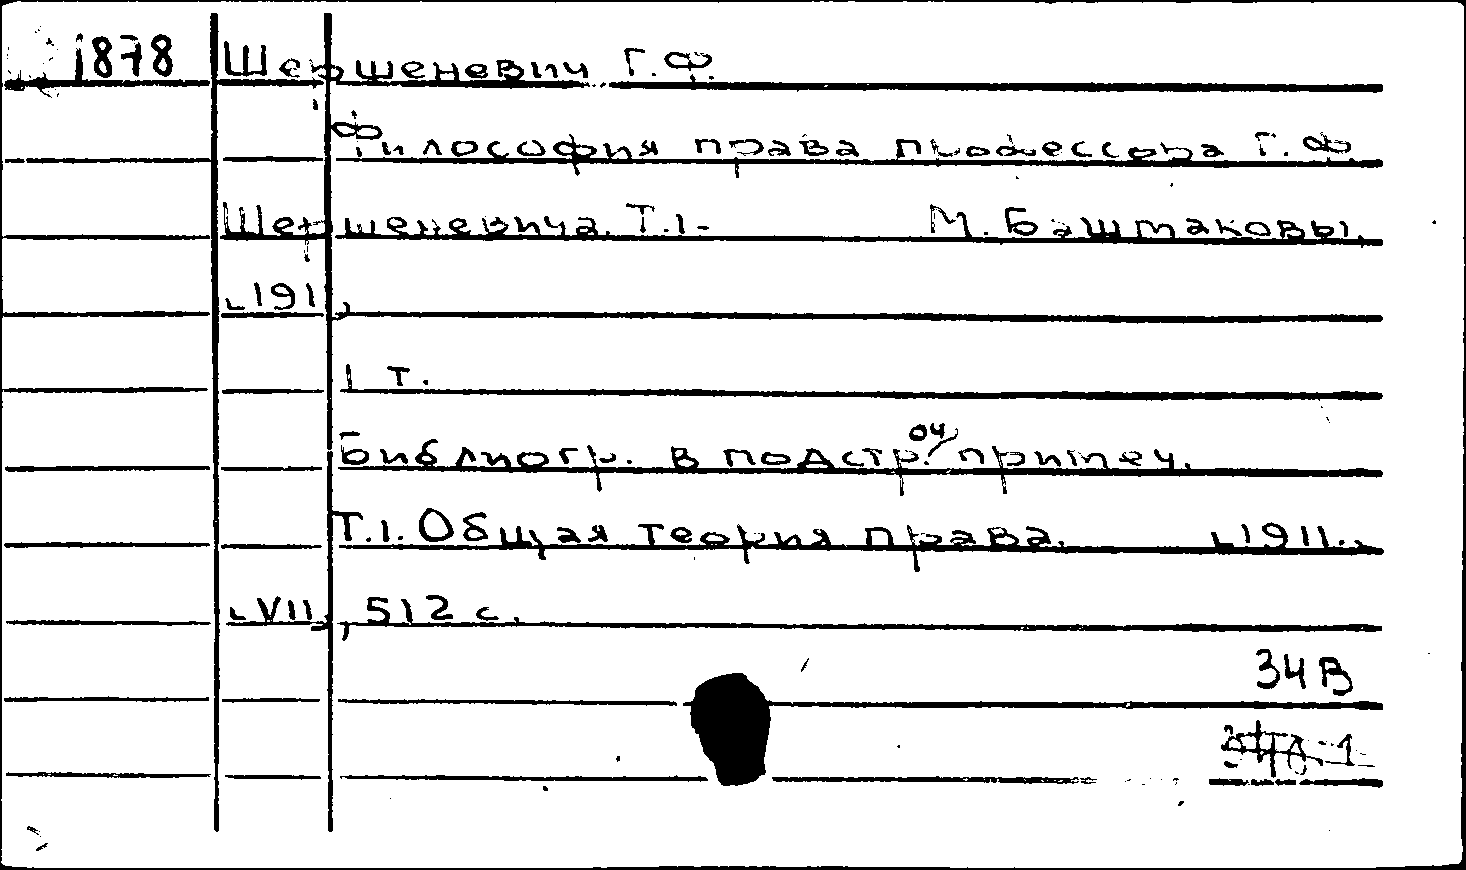 1878 Шершеневич Г.Ф.
Философия права профессора Г.Ф.
Шершеневича. Т.1- М. Башмаковы,
[191],
1 т.
Библиогр. в подстроч. примеч.
Т.1. Общая теория права. [1911.],
[VII], 512 с.
34В